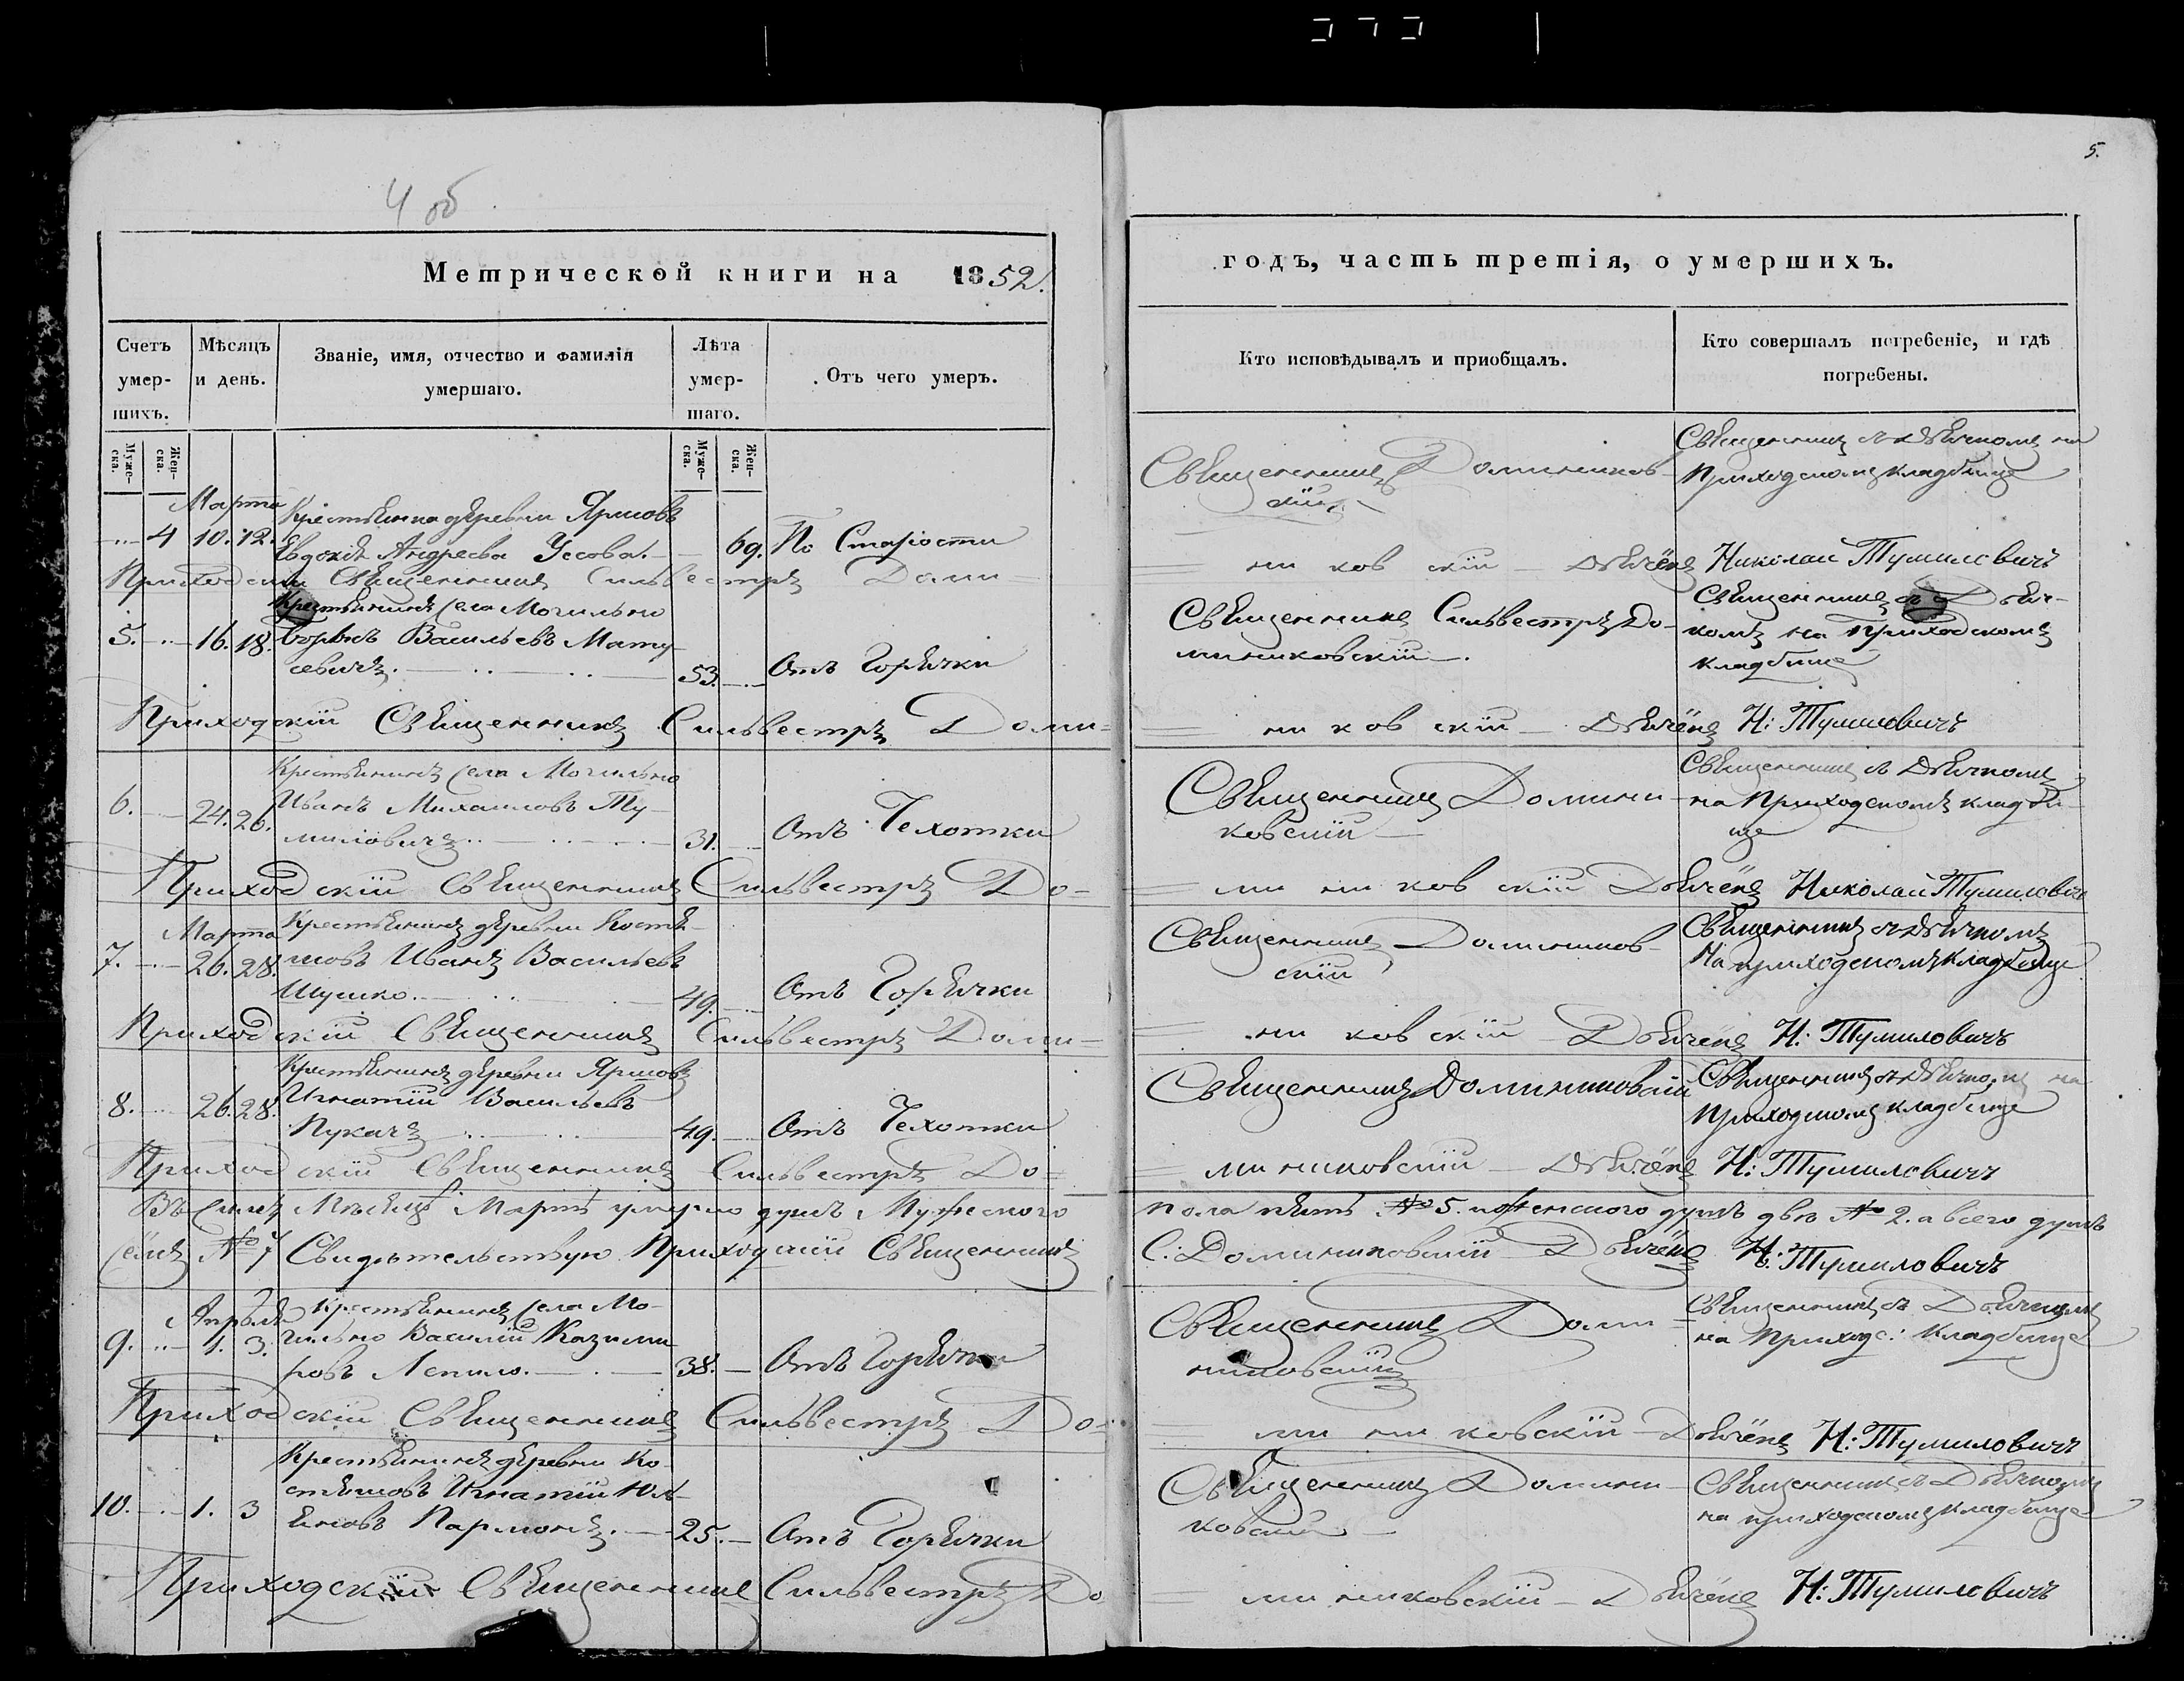 4 об
5.
Метрической книги на 1852.
годъ, часть третія, о умершихъ.
Счетъ умер-шихъ.
Мѣсяцъ и день.
Званіе, имя, отчество и фамилія умершаго.
Лѣта умер-шаго.
Отъ чего умеръ.
Кто исповѣдывалъ и приобщалъ.
Кто совершалъ погребеніе, и гдѣ погребены.
Муже-ска.
Жен-ска.
Муже-ска.
Жен-ска.
Марта
Крестьянка деревни
4 10. 12. Андреева Усова. 69. По Старости
Священникъ Домиников-
скій
Священникъ съ Дьячкомъ на
Приходскомъ кладбище
Приходскій Священникъ Сильвестръ Доми=
= ни ков скій Дьячёкъ Николай Тумиловичъ
Крестьянинъ села Могильно
5. 16. 18. Васильевъ Мату-
севичъ. 53. Отъ Горячки
Священникъ Сильвестръ До-
миниковскій.
Священникъ съ Дьяч-
комъ на приходскомъ
кладбище
Приходскій Священникъ Сильвестръ Доми=
= ни ков скій Дьячёкъ Н: Тумиловичъ
Крестьянинъ села Могильно
6. 24. 26. Иванъ Михаиловъ Ту-
миловичъ 31. Отъ Чехотки
Священникъ Домини-
ковскій
Священникъ съ Дьячкомъ
на Приходскомъ кладби-
ще
Приходскій Священникъ Сильвестръ До=
= ми ни ков скій Дьячёкъ Николай Тумиловичъ
Марта Крестьянинъ деревни Костя-
7. 26. 28. шовъ Иванъ Васильевъ
Шушко. 49. Отъ Горячки
Священникъ Домиников-
скій
Священникъ съ Дьячкомъ
На приходскомъ кладбище
Приходскій Священникъ Сильвестръ Доми=
= ни ков скій Дьячёкъ Н: Тумиловичъ
Крестьянинъ деревни
8. 26. 28. Игнатій Васильевъ
Пукачъ 49. Отъ Чехотки
Священникъ Доминиковскій
Священникъ съ Дьячкомъ на
Приходскомъ кладбище
Приходскій Священникъ Сильвестръ До=
= миниковскій Дьячёкъ Н: Тумиловичъ
Въ семъ Мѣсяцѣ Мартѣ умерло душъ Мужескаго
пола пять № 5. и женского душъ двѣ № 2. а всего душъ
семъ № 7 Свидѣтельствую Приходскій Священникъ
С: Доминиковскій Дьячёкъ Н: Тумиловичъ
Апрѣля Крестьянинъ села Мо-
9. 1. 3. гильно Василій Казими-
ровъ Лепило. 38. Отъ Горячки
Священникъ Доми-
никовскій
Священникъ съ Дьячкомъ
на Приходс: Кладбище
Приходскій Священникъ Сильвестръ До=
= ми ни ковскій Дьячёкъ Н: Тумиловичъ
Крестьянинъ деревни Ко-
стяшовъ Игнатій Юль-
10. 1. 3 яновъ Пармонъ. 25. Отъ Горячки
Священникъ Домини-
ковскій
Священникъ съ Дьячкомъ
на приходскомъ кладбище
Приходскій Священникъ Сильвестръ До
= ми никовскій Дьячёкъ Н: Тумиловичъ